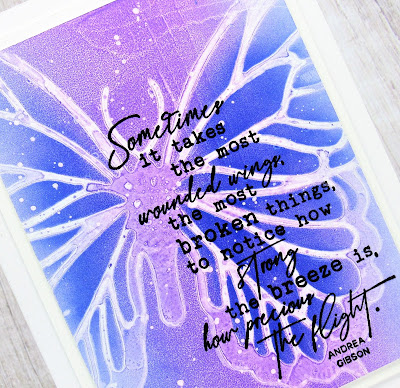 Sometimes
it takes
the most
wounded wings,
the most
broken things,
to notice how
strong
the breeze is,
how precious
the flight.
ANDREA
GIBSON